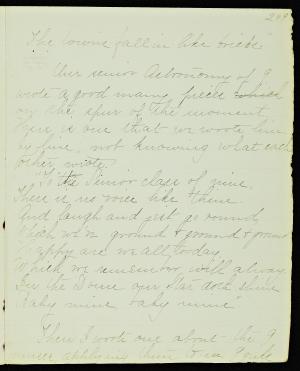 209
The towns fall in like bricks"
Our senior Astronomy of 9
wrote a good many pieces which
on the spur of the moment.
Here is one that we wrote line
by line, not knowing what each
other wrote.
"To the Senior class of nine
There is no voice like thine
And laugh and jest go round
Which we ground & ground & ground
Happy are we all today
Which we remember will alway
In the Dome our star doth shine
Baby mine baby mine"
Then I wrote one about the 9